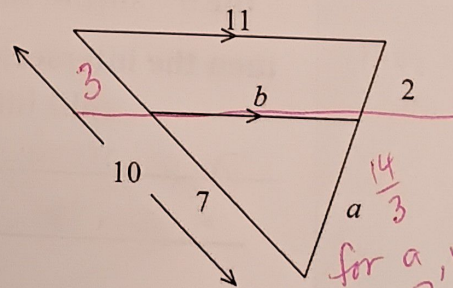 11
3
b
2
10
7
a
14
3
for a